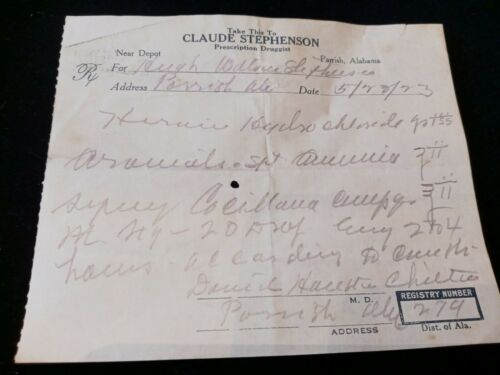 Take This To
CLAUDE STEPHENSON
Prescription Druggist
Near Depot Parrish, Alabama
Rx For Hugh Wallace Stephenson
Address Parrish Ala Date 5/23/23
Heroin Hydrochloride gr
Aromatic Spt Ammonia ℨ ii
Syrup Cocillana Comp ℥ ii
M Sig - 20 Drop Every 2 or 4
hours - according to
M. D.
Parrish Ala 274
REGISTRY NUMBER
ADDRESS Dist. of Ala.